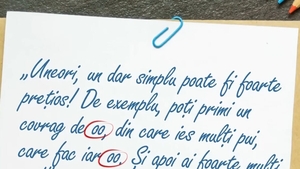 „Uneori, un dar simplu poate fi foarte
prețios! De exemplu, poți primi un
covrag de oo, din care ies mulți pui,
care fac iar oo. Și apoi ai foarte mulți